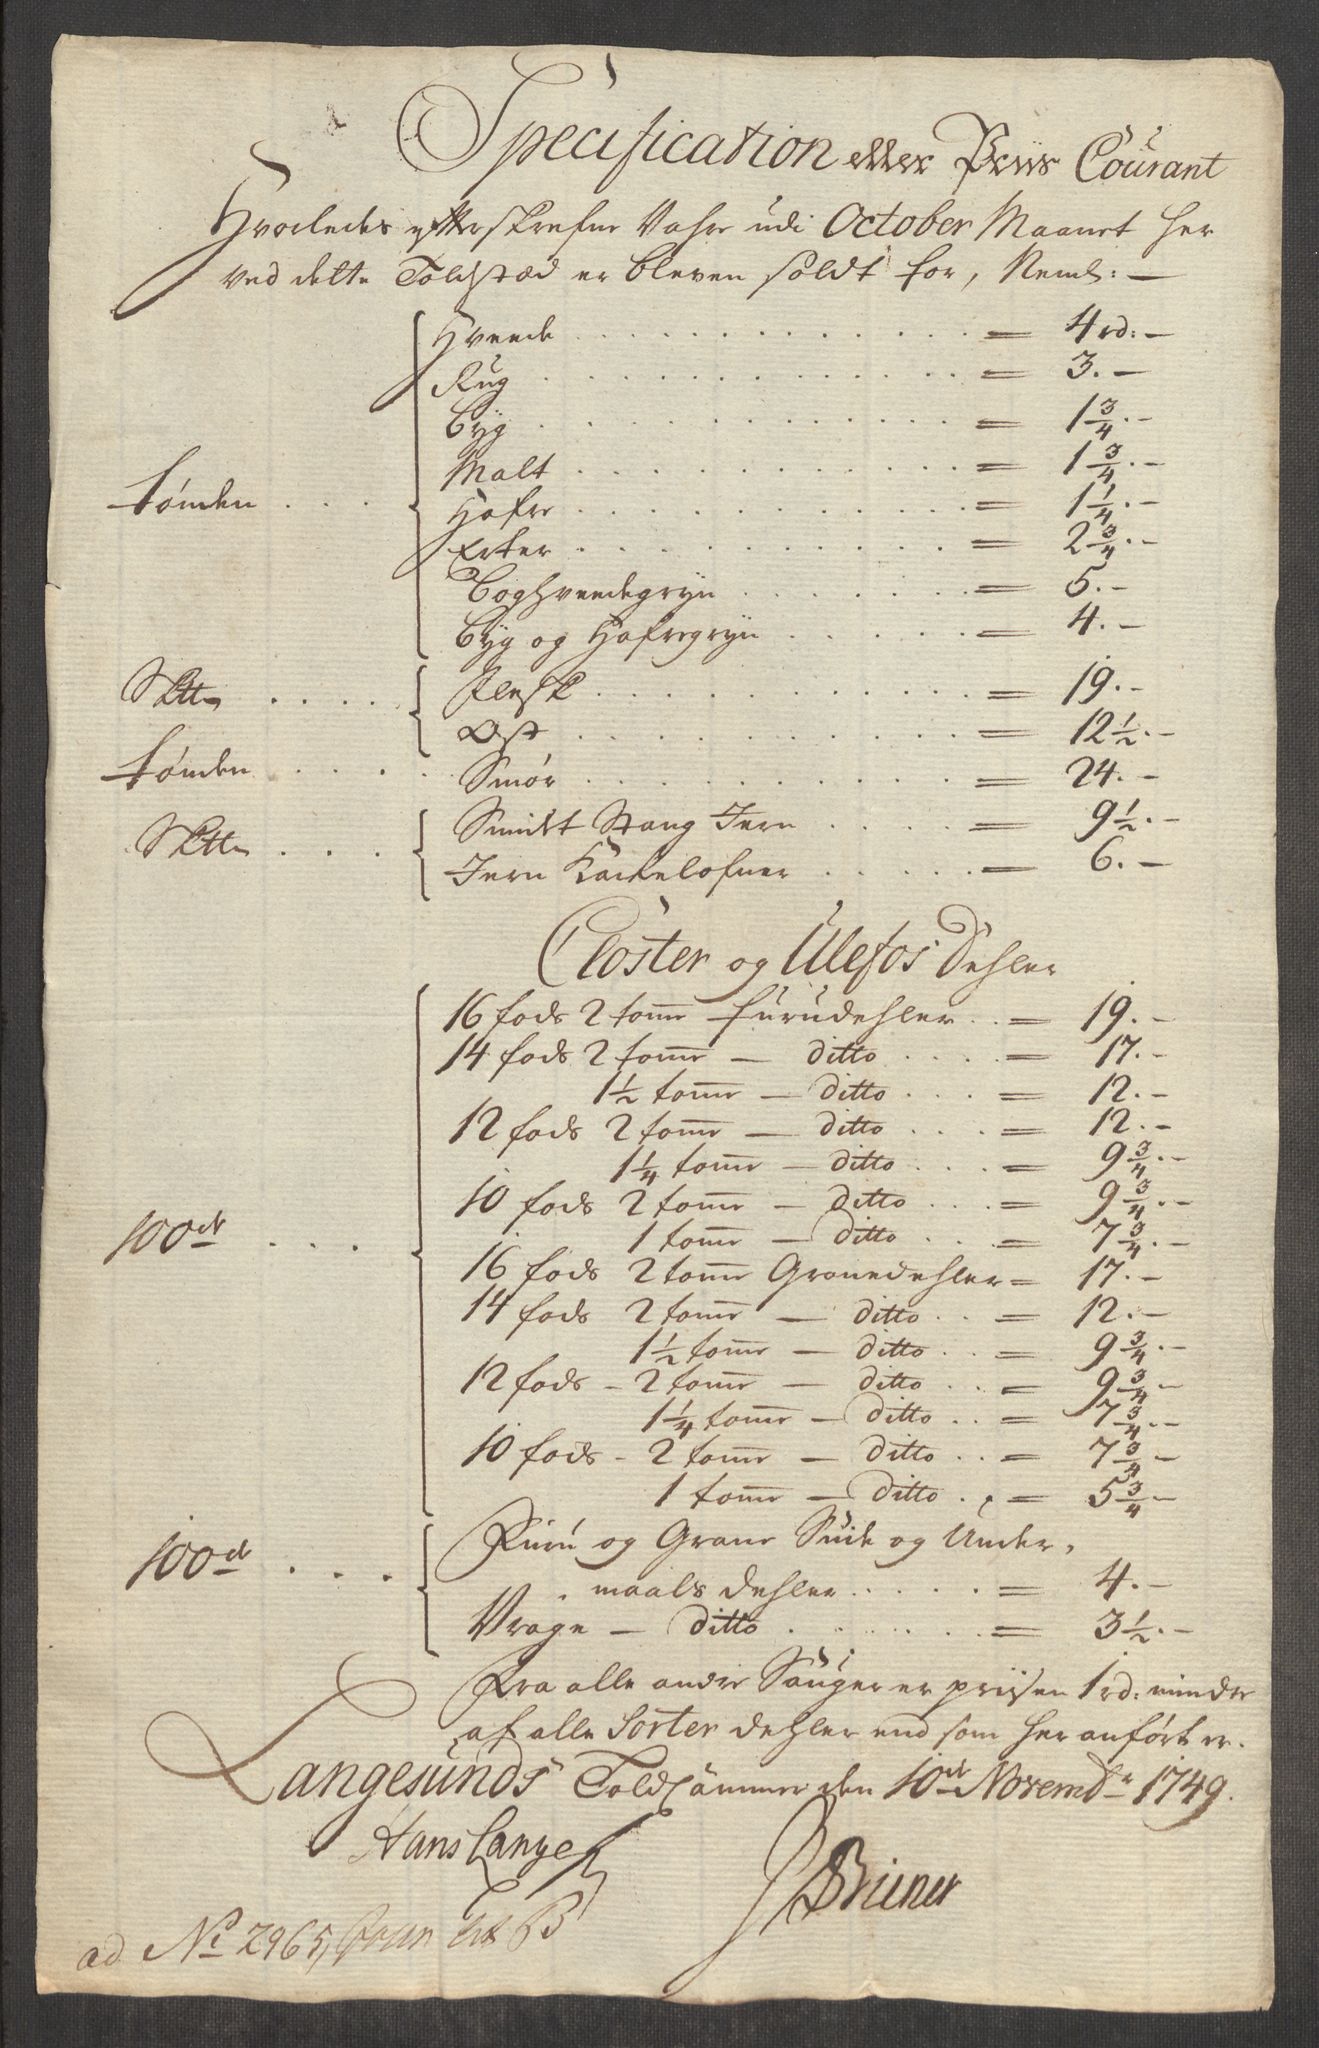 Specification eller Priis Courant
Hvorledes efterskrefne Vahre udi October Maanet her
ved dette Toldstæd er bleven soldt for, Neml: —
Tønden . . . Hveede . . . = 4 rd: —
Rug . . . = 3. —
Byg . . . = 1 3/4. —
Malt . . . = 1 3/4. —
Hafre . . . = 1 1/4. —
Erter . . . = 2 3/4. —
Boghveedegryn . . . = 5. —
Byg og Hafregryn . . . = 4. —
Skttn . . . Flesk . . . = 19. —
Ost . . . = 12 1/2. —
Tønden . . . Smør . . . = 24. —
Skttn . . . Smidt Stang Jern . . . = 9 1/2. —
Jern Kackelofner . . . = 6. —
Closter og Ulefos Dehler
100de . . . 16 fods 2 tome furudehler . . = 19. —
14 fods 2 tome — ditto . . . = 17. —
1 1/2 tome — ditto . . . = 12. —
12 fods 2 tome — ditto . . . = 12. —
1 1/4 tome — ditto . . . = 9 3/4. —
10 fods 2 tome — ditto . . . = 9 3/4. —
1 tome — ditto . . . = 7 3/4. —
16 fods 2 tome Granedehler = 17. —
14 fods 2 tome — ditto . . = 12. —
1 1/2 tome — ditto . . = 9 3/4. —
12 fods - 2 tome — ditto . . = 9 3/4 —
1 1/4 tome — ditto . . = 7 3/4. —
10 fods - 2 tome — ditto . . = 7 3/4 —
1 tome — ditto . . = 5 3/4 —
100de . . . Furu og Grane Suite og Under-
maals dehler . . . = 4. —
Vrage — ditto . . . = 3 1/2. —
Fra alle andre Sauger er priisen 1 rd: mindre
af alle Sorter dehler end som her anført er.
Langesunds Toldcammer den 10de Novembr 1749.
Hans Lange
Bruner
ad No 2965,